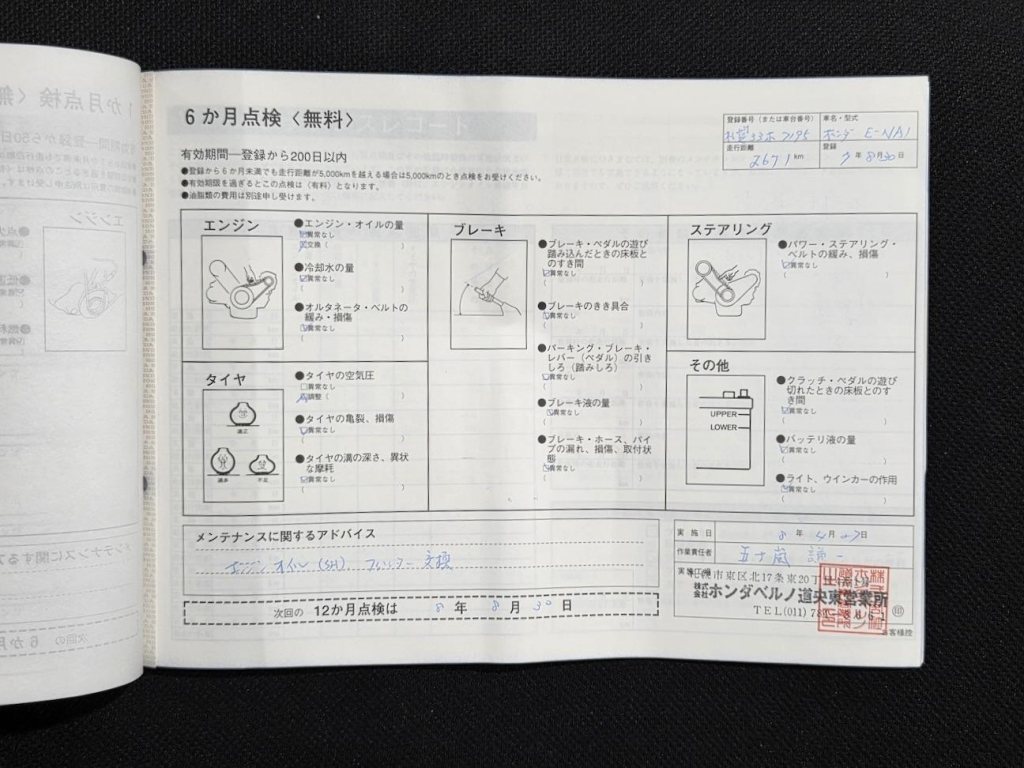 6か月点検〈無料〉
有効期間―登録から200日以内
●登録から6か月未満でも走行距離が5,000kmを越える場合は5,000kmのとき点検をお受けください。
●有効期限を過ぎるとこの点検は（有料）となります。
●油脂類の費用は別途申し受けます。
登録番号（または車台番号）
車名・型式
ホンダ E-NA1
走行距離
2671 km
登録
7年8月30日
エンジン
●エンジン・オイルの量
異常なし
交換（　　）
●冷却水の量
異常なし
（　　）
●オルタネータ・ベルトの
緩み・損傷
異常なし
（　　）
タイヤ
適正
過多
不足
●タイヤの空気圧
異常なし
調整（　　）
●タイヤの亀裂、損傷
異常なし
（　　）
●タイヤの溝の深さ、異状
な摩耗
異常なし
（　　）
ブレーキ
●ブレーキ・ペダルの遊び
踏み込んだときの床板と
のすき間
異常なし
（　　）
●ブレーキのきき具合
異常なし
（　　）
●パーキング・ブレーキ・
レバー（ペダル）の引き
しろ（踏みしろ）
異常なし
（　　）
●ブレーキ液の量
異常なし
（　　）
●ブレーキ・ホース、パイ
プの漏れ、損傷、取付状
態
異常なし
（　　）
ステアリング
●パワー・ステアリング・
ベルトの緩み、損傷
異常なし
（　　）
その他
UPPER
LOWER
●クラッチ・ペダルの遊び
切れたときの床板とのす
き間
異常なし
（　　）
●バッテリ液の量
異常なし
（　　）
●ライト、ウインカーの作用
異常なし
（　　）
メンテナンスに関するアドバイス
エンジンオイル(SH)、フィルター交換
次回の 12か月点検は 8年8月30日
実施日 8年4月27日
作業責任者 五十嵐
実施工場
札幌市東区北17条東20丁
株式会社ホンダベルノ道央東営業所
TEL(011)
㊞
お客様控